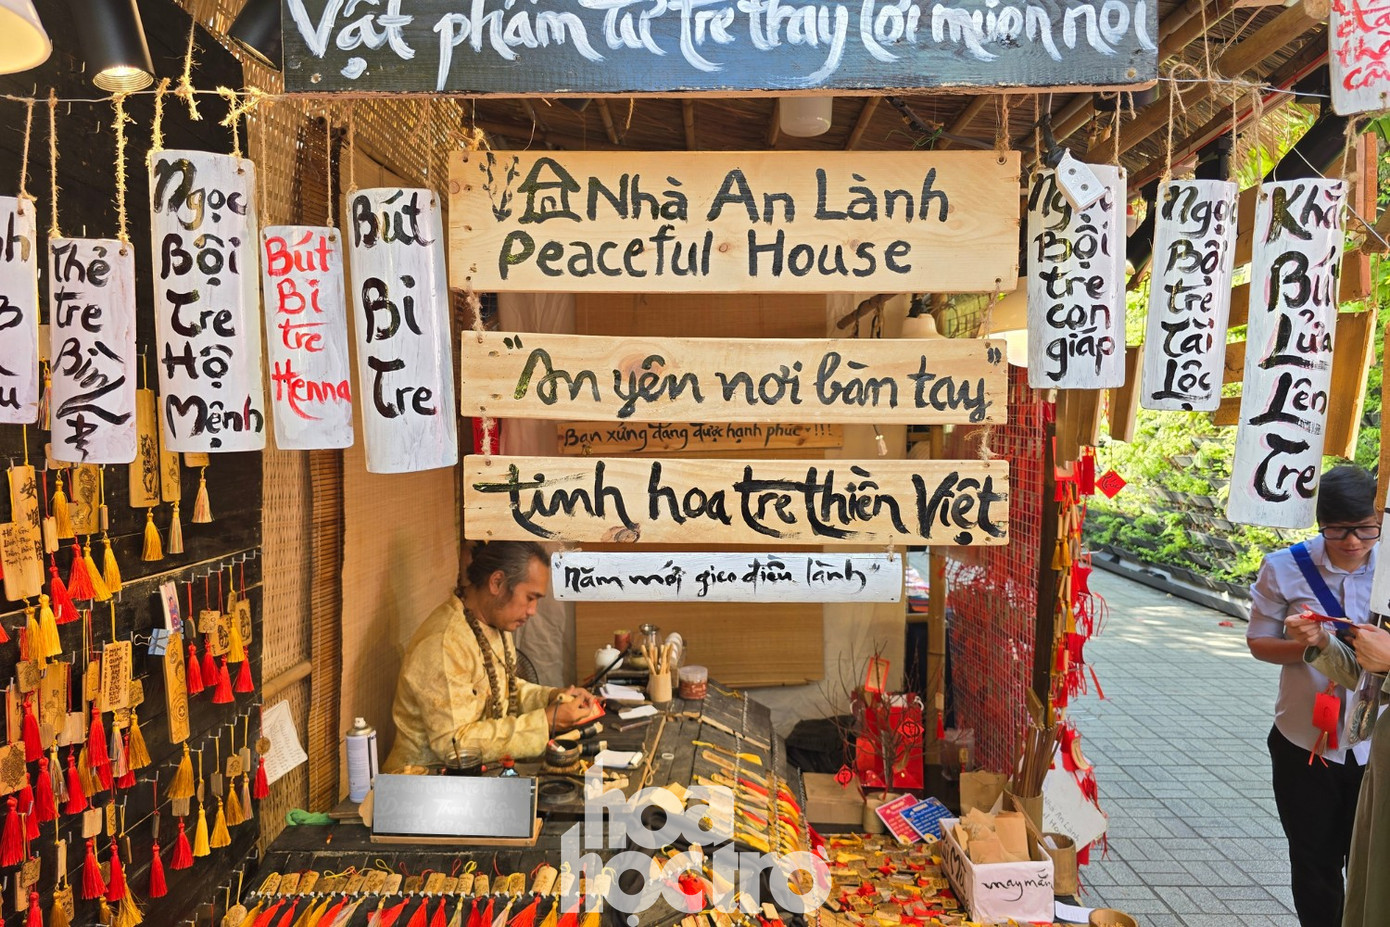 Vật phẩm từ tre thay lời muốn nói
Nhà An Lành
Peaceful House
"An yên nơi bàn tay"
Bạn xứng đáng được hạnh phúc !!!
tinh hoa tre thiền Việt
"Năm mới gieo điều lành"
Thẻ
tre
Bình
An
Ngọc
Bội
Tre
Hộ
Mệnh
Bút
Bi
tre
Henna
Bút
Bi
Tre
Ngọc
Bội
tre
con
giáp
Ngọc
Bội
tre
Tài
Lộc
Khắc
Bút
Lửa
Lên
Tre
may mắn
hoa
học
trò